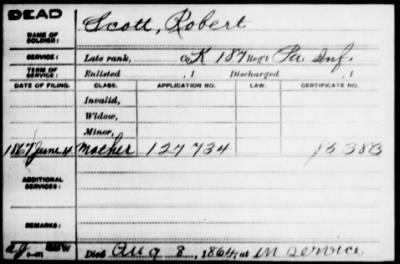 DEAD
NAME OF SOLDIER: Scott, Robert
SERVICE: Late rank, Co. K 187 Reg't Pa Inf.
TERM OF SERVICE: Enlisted , 1 Discharged , 1
DATE OF FILING. CLASS. APPLICATION NO. LAW. CERTIFICATE NO.
Invalid,
Widow,
Minor,
1867 June 4 Mother 127734
ADDITIONAL SERVICES:
REMARKS:
Died Aug 8, 1864, at in service